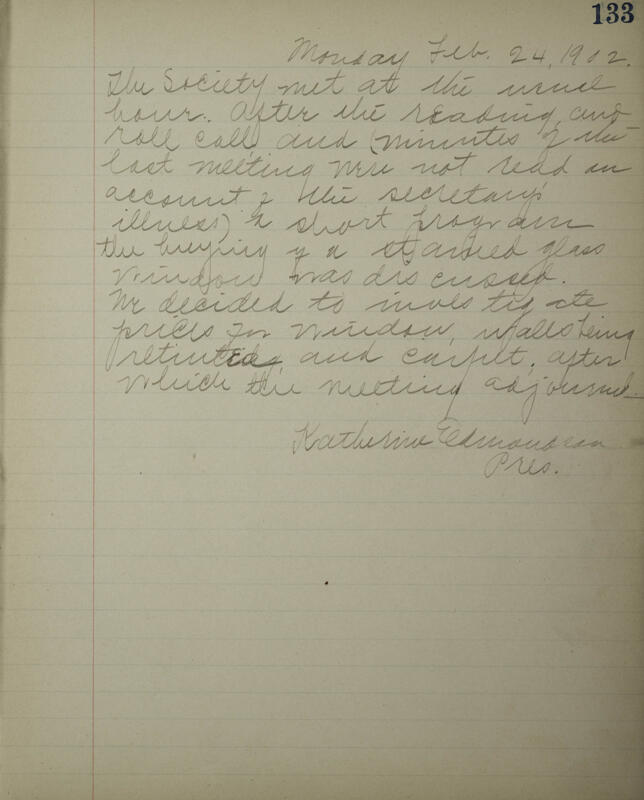 133
Monday Feb. 24, 1902.
The Society met at the usual
hour. After the reading and
roll call and (minutes of the
last meeting were not read on
account of the secretary's
illness) a short program
the buying of a stained glass
window was discussed.
We decided to investigate
prices for window, walls being
retinted and carpet. after
which the meeting adjourned.
Katherine Edmondson
Pres.